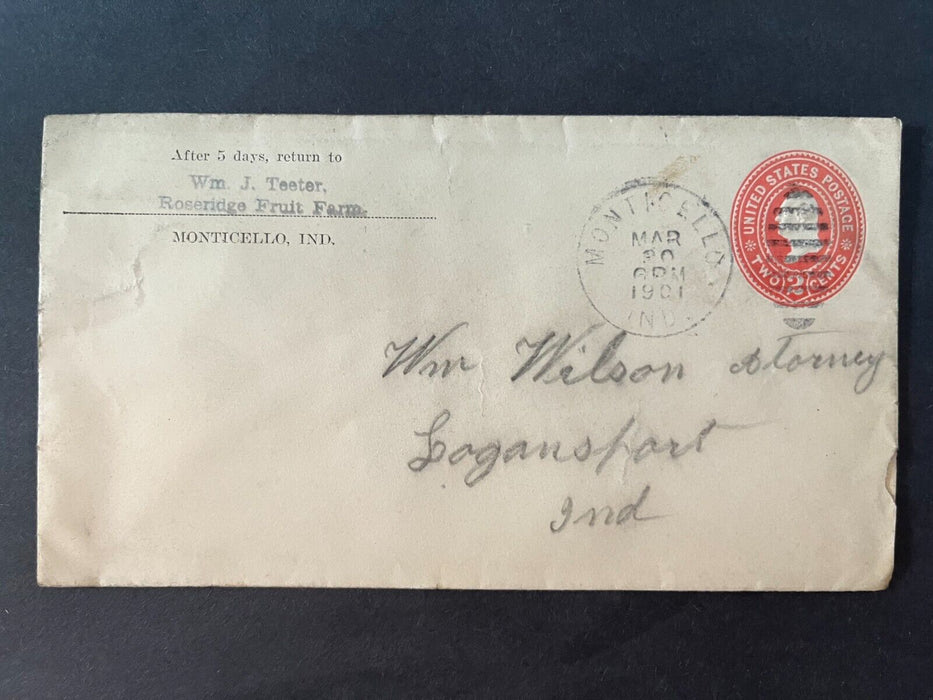 After 5 days, return to
Wm. J. Teeter,
Roseridge Fruit Farm.
MONTICELLO, IND.
MONTICELLO,
MAR
30
6 PM
1901
IND.
UNITED STATES POSTAGE
TWO 2 CENTS
Wm Wilson Atorney
Logansport
Ind